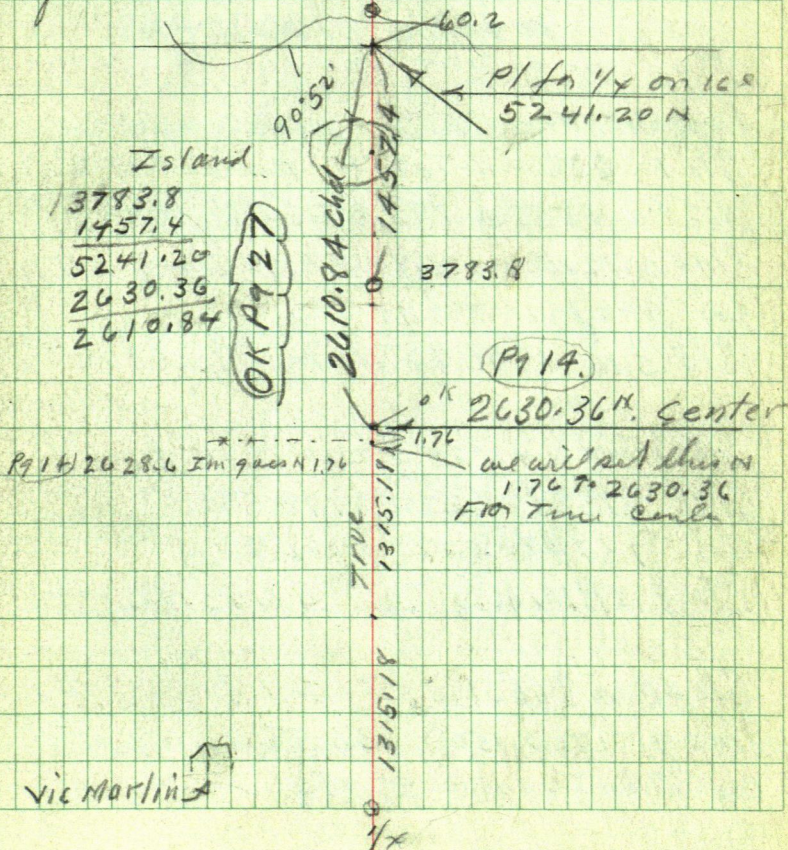 60.2
Pl for 1/x on ice
5241.20 N
90°52'
1457.4
Island
3783.8
1457.4
5241.20
2630.36
2610.84
OK Pg 27
2610.84 chd
3783.8
Pg 14.
ok 2630.36 N. Center
1.76
Pg 14) 2628.6 Im goes N 1.76
we will set this N
1.76 To 2630.36
For True Center
True
1315.18
1315.18
Vic Marlin
1/x